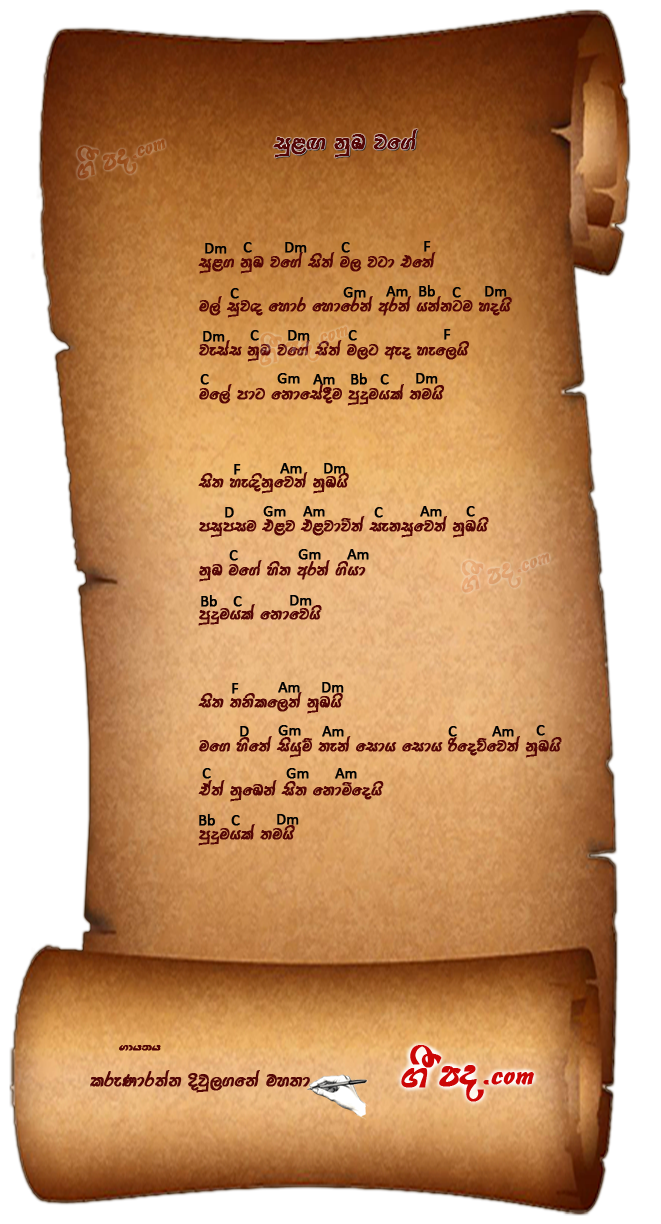 ගී පද.com
සුළඟ නුඹ වගේ
Dm C Dm C F
සුළග නුඹ වගේ සිත් මල වටා එතේ
C Gm Am Bb C Dm
මල් සුවඳ හොර හොරෙන් අරන් යන්නටම හදයි
Dm C Dm C F
වැස්ස නුඹ වගේ සිත් මලට ඇද හැලෙයි
C Gm Am Bb C Dm
මලේ පාට නොසේදීම පුදුමයක් තමයි
F Am Dm
සිත හැඳිනුවෙත් නුඹයි
D Gm Am C Am C
පසුපසම එළව එළවාවිත් සැනසුවෙත් නුඹයි
C Gm Am
නුඹ මගේ හිත අරන් ගියා
Bb C Dm
පුදුමයක් නොවෙයි
ගී පද.com
F Am Dm
සිත තනිකලෙත් නුඹයි
D Gm Am C Am C
මගෙ හිතේ සියුම් තැන් සොය සොය රිදෙව්වෙත් නුඹයි
C Gm Am
ඒත් නුඹෙන් සිත නොමිදෙයි
Bb C Dm
පුදුමයක් තමයි
ගායනය
කරුණාරත්න දිවුලගනේ මහතා
ගී පද.com